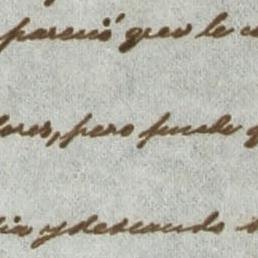 pareció que le
lores, pero puede
dia y deseando